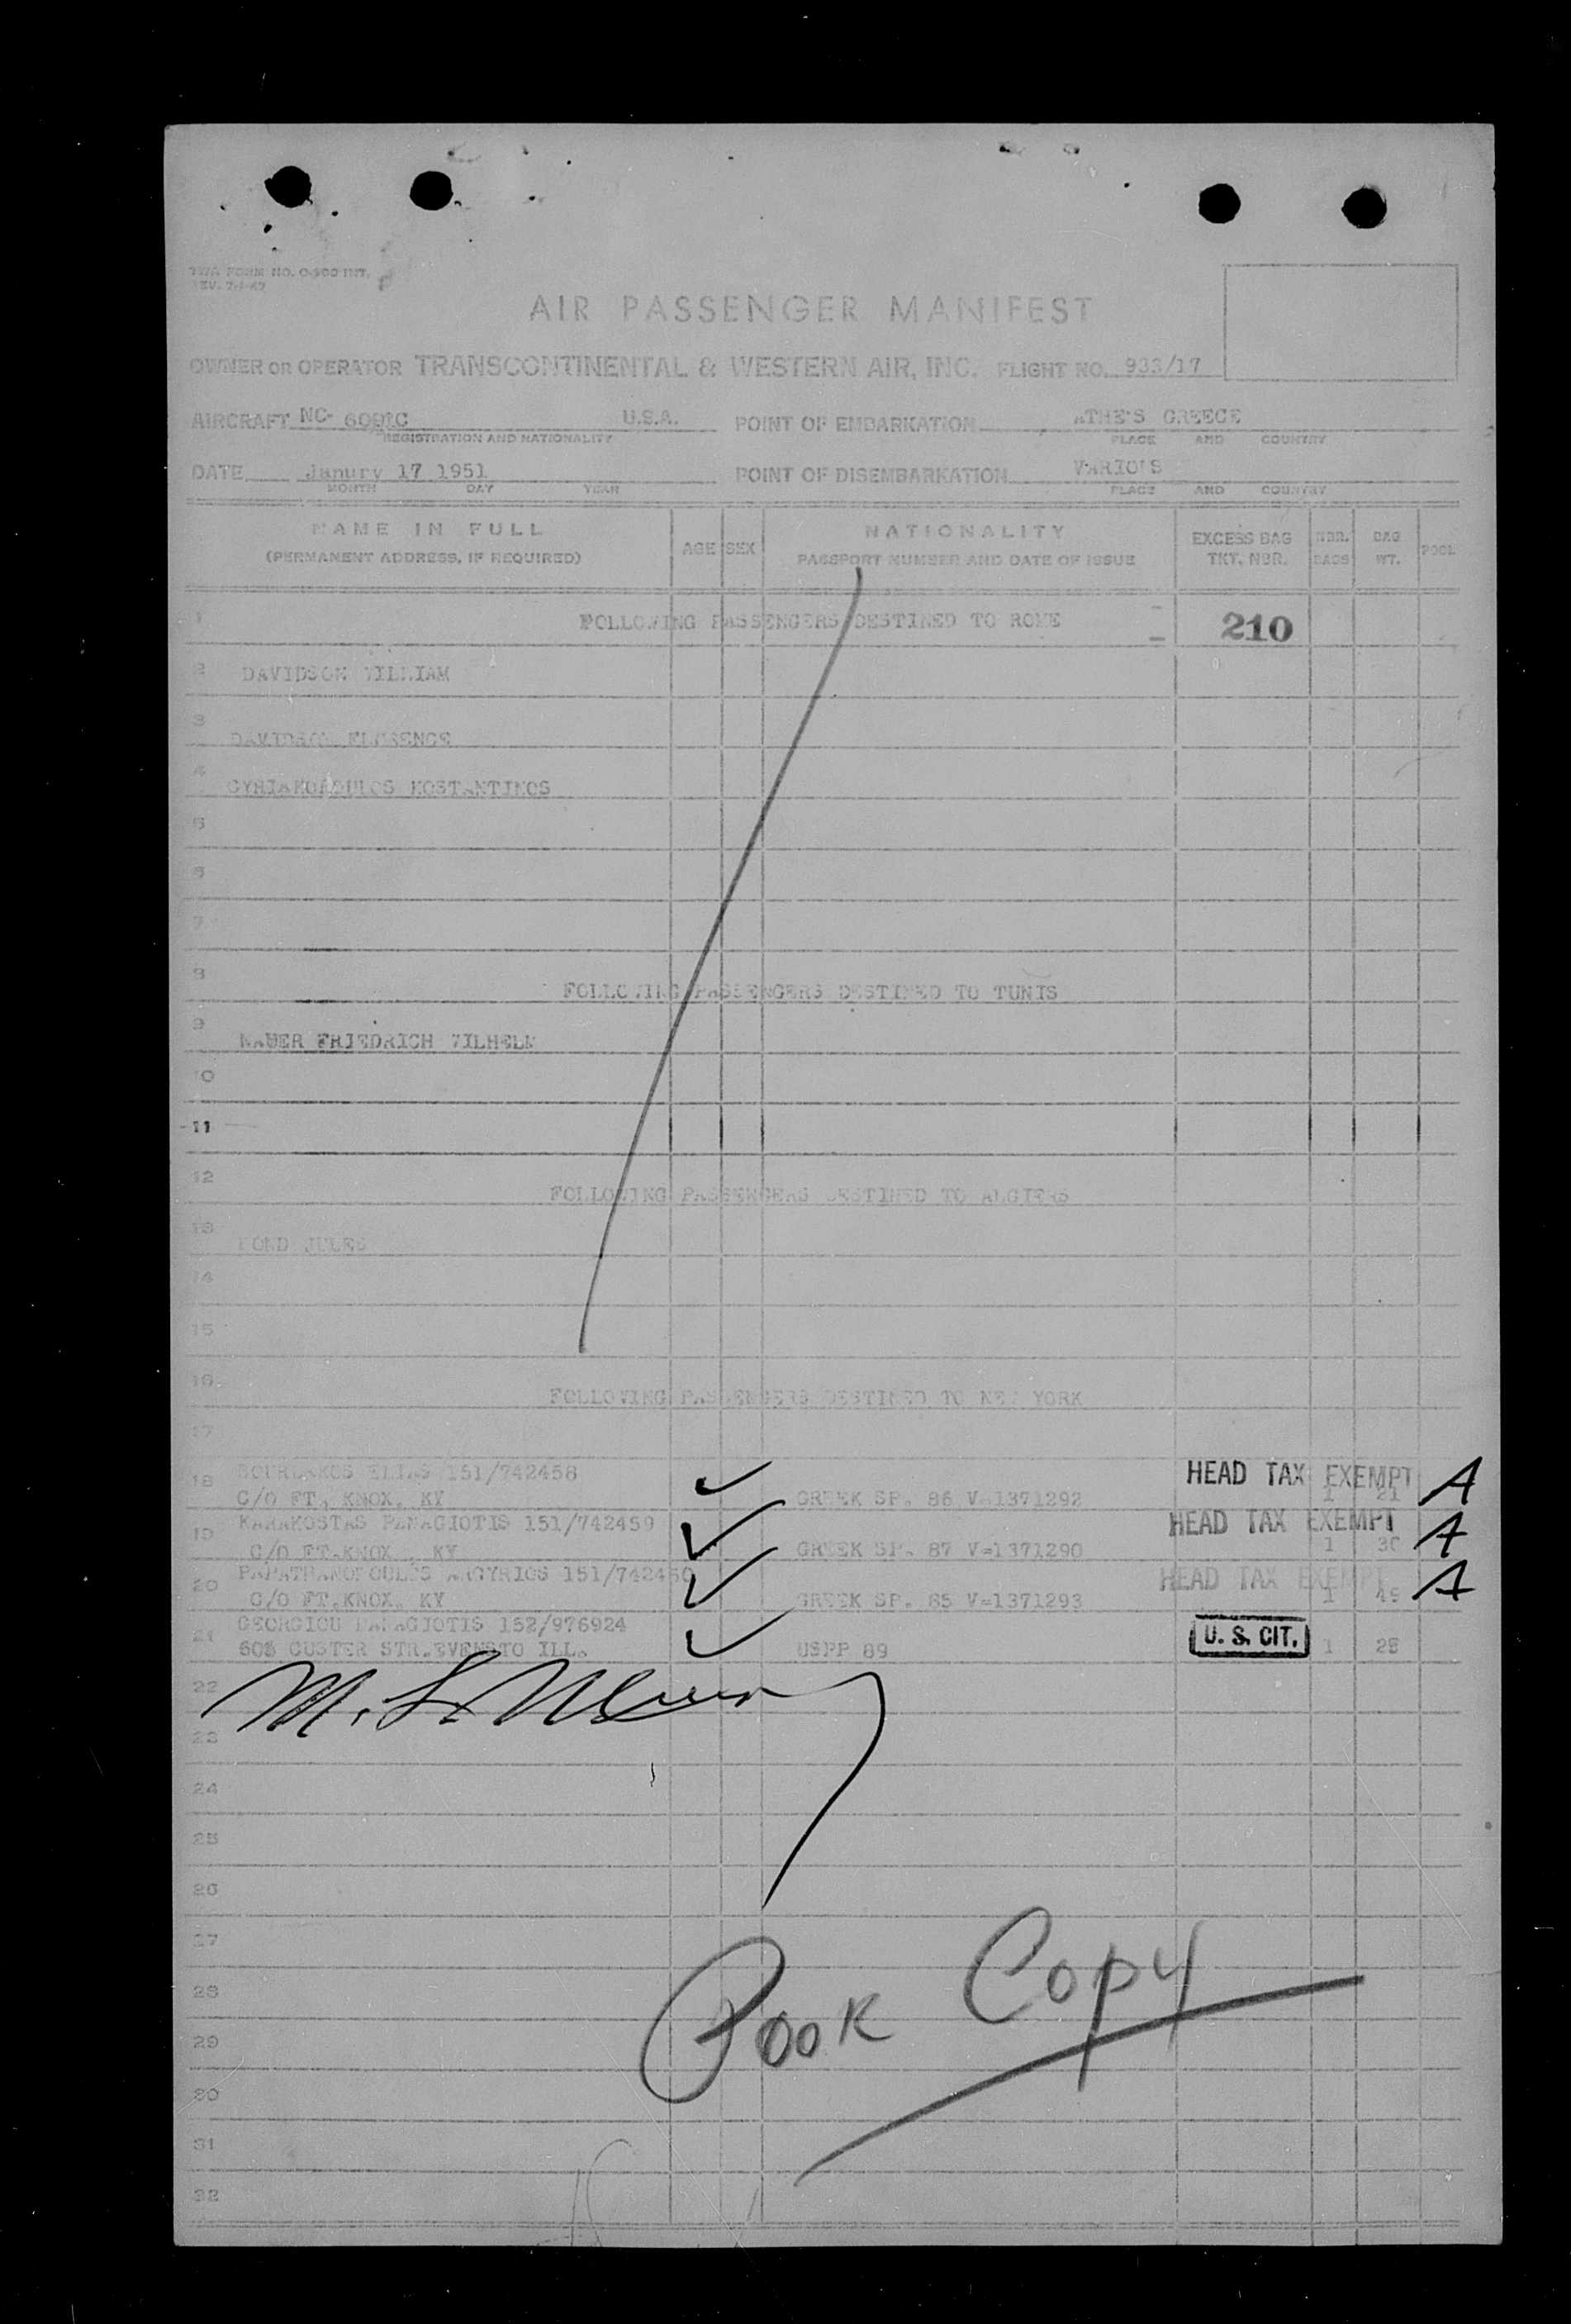 TWA FORM NO. O-300 INT.
REV. 7-1-47
AIR PASSENGER MANIFEST
OWNER OR OPERATOR TRANSCONTINENTAL & WESTERN AIR, INC. FLIGHT NO. 933/17
AIRCRAFT NC- U.S.A. POINT OF EMBARKATION ATHE'S GREECE
REGISTRATION AND NATIONALITY PLACE AND COUNTRY
DATE Janury 17 1951 POINT OF DISEMBARKATION VARIOUS
MONTH DAY YEAR PLACE AND COUNTRY
NAME IN FULL
(PERMANENT ADDRESS, IF REQUIRED)
AGE SEX
NATIONALITY
PASSPORT NUMBER AND DATE OF ISSUE
EXCESS BAG
TKT. NBR.
NBR.
BAGS
BAG
WT.
POOL
1 FOLLOWING PASSENGERS DESTINED TO ROME 210
2 DAVIDSON WILLIAM
3 DAVIDSON FLORENCE
4 CYRIAKOPOULOS KOSTANTINOS
5
6
7
8 FOLLOWING PASSENGERS DESTINED TO TUNIS
9 FRIEDRICH WILHELM
10
11
12 FOLLOWING PASSENGERS DESTINED TO ALGIERS
13 JULES
14
15
16 FOLLOWING PASSENGERS DESTINED TO NEW YORK
17
18 BOURLAKOS ELIAS 151/742458 HEAD TAX EXEMPT A
C/O FT. KNOX. KY GREEK SP. 86 V=1371292 1 21
19 KARAKOSTAS PANAGIOTIS 151/742459 HEAD TAX EXEMPT A
C/O FT.KNOX KY GREEK SP. 87 V=1371290 1 30
20 PAPATHANOPOULOS ARGYRIOS 151/742460 HEAD TAX EXEMPT A
C/O FT.KNOX. KY GREEK SP. 85 V=1371293 1 49
21 GEORGIOU PANAGIOTIS 152/976924 U. S. CIT.
CUSTER STR.EVENSTO ILL. USPP 89 1 25
22
23
24
25
26
27
28
29
30
31
32
Book Copy